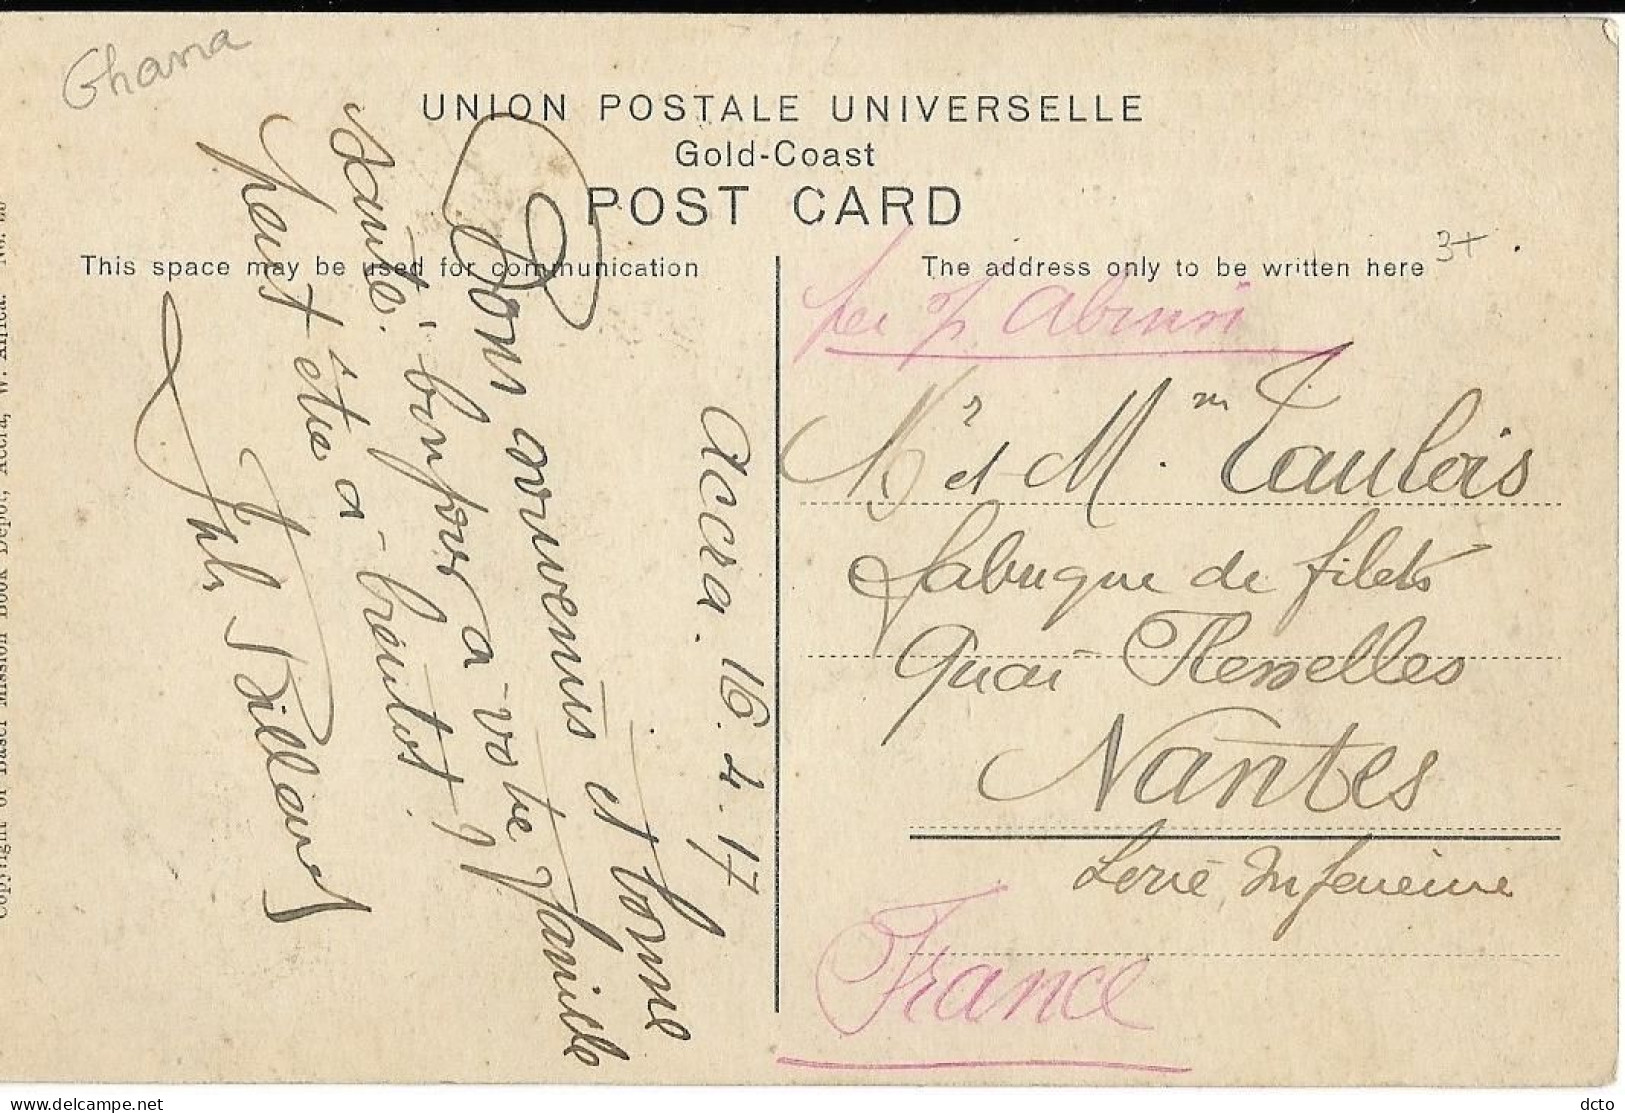 Ghana
UNION POSTALE UNIVERSELLE
Gold-Coast
POST CARD
This space may be used for communication
The address only to be written here
3+
Accra. 16.4.17
Bons souvenirs et bonne
santé. bonjour à votre famille
peut être à bientôt?
per s/s Abinsi
Mr et Mm Taulois
fabrique de filets
Quai
Nantes
Loire Inferieure
France
Copyright of Basel Mission Book Depot, Accra, W. Africa. No.
delcampe.net
dcto